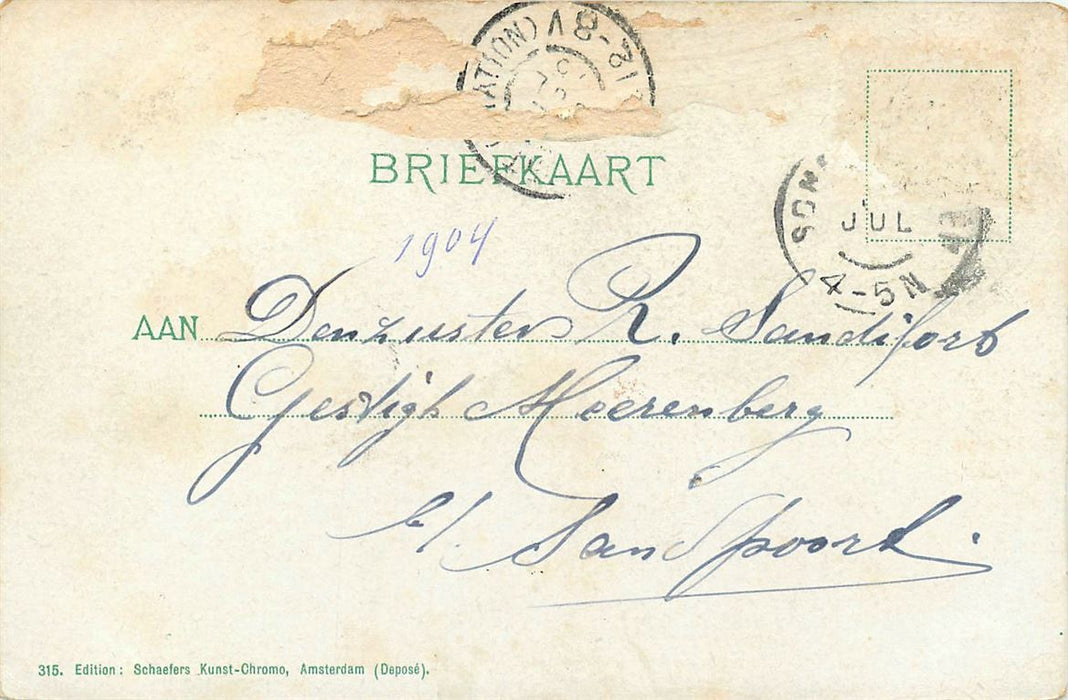 (STATION)
8-12 V
BRIEFKAART
JUL
4-5N
1904
AAN Den zuster R. Sandifort
Gesticht Meerenberg
b/. Sandpoort.
315. Edition: Schaefers Kunst-Chromo, Amsterdam (Deposé).